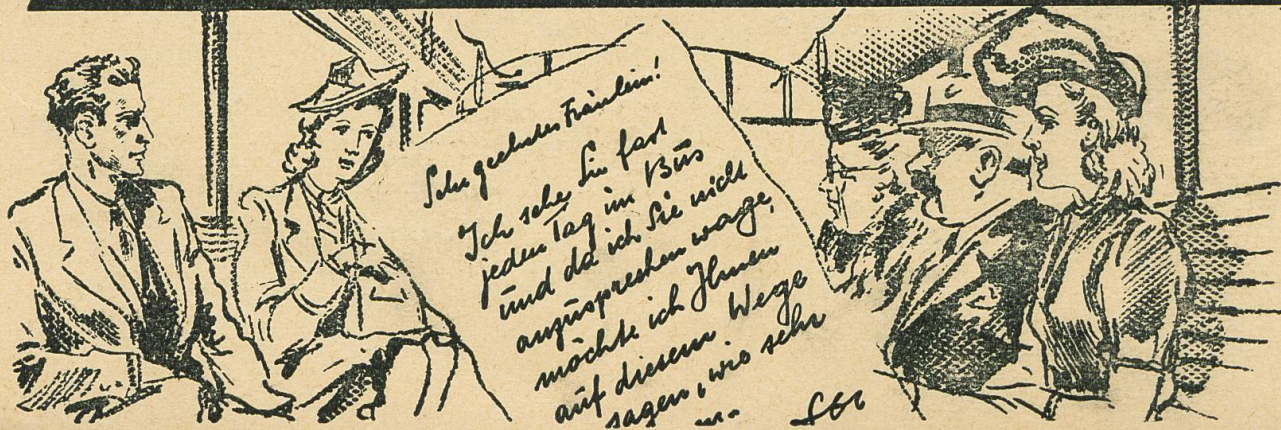 Sehr geehrtes Fräulein!
Ich sehe Sie fast
jeden Tag im Bus
und da ich Sie nicht
anzusprechen wage,
möchte ich Ihnen
auf diesem Wege
sagen, wie sehr